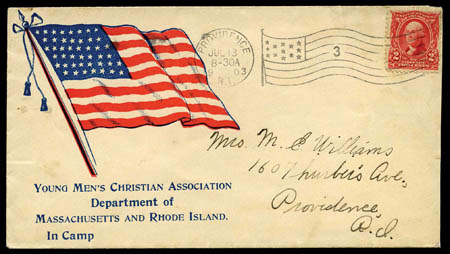 PROVIDENCE
JUL 13
8-30A
03
R.I.
3
2
2
Mrs. M. E. Williams
160 Thurber's Ave,
Providence,
R.I.
YOUNG MEN'S CHRISTIAN ASSOCIATION
Department of
MASSACHUSETTS AND RHODE ISLAND.
In Camp